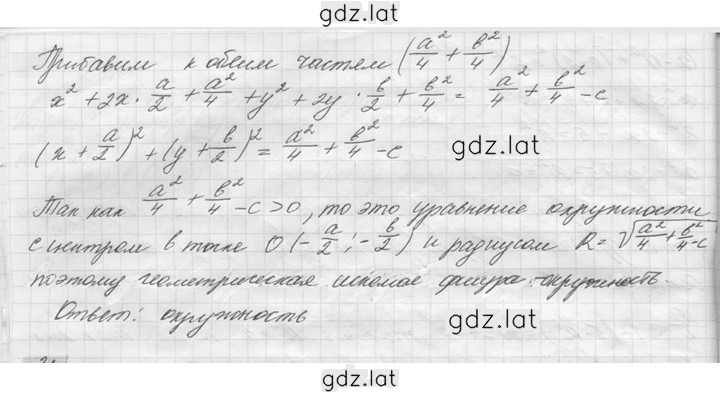 gdz.lat
Прибавим к обеим частям (a²/4 + b²/4)
x² + 2x · a/2 + a²/4 + y² + 2y · b/2 + b²/4 = a²/4 + b²/4 - c
(x + a/2)² + (y + b/2)² = a²/4 + b²/4 - c
gdz.lat
Так как a²/4 + b²/4 - c > 0, то это уравнение окружности
с центром в точке O (-a/2; -b/2) и радиусом R = √(a²/4 + b²/4 - c)
поэтому геометрическая искомая фигура - окружность.
Ответ: окружность
gdz.lat
gdz.lat